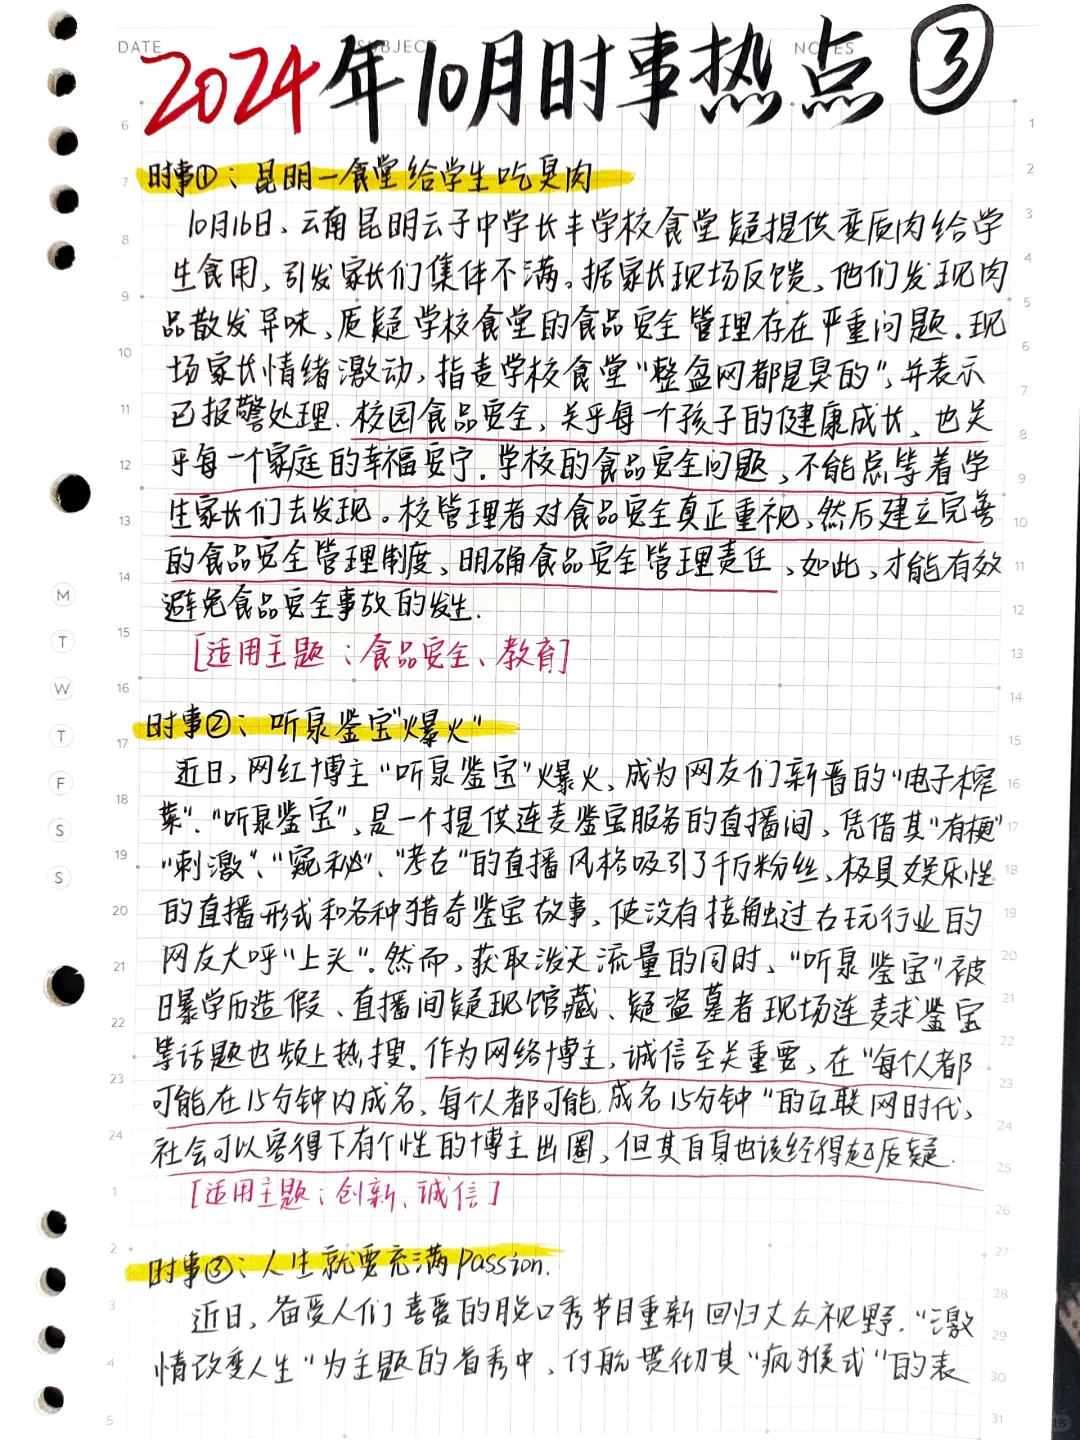 DATE SUBJECT NOTES
2024年10月时事热点③
时事①：昆明一食堂给学生吃臭肉
10月16日、云南昆明云子中学长丰学校食堂疑提供变质肉给学
生食用，引发家长们集体不满。据家长现场反馈，他们发现肉
品散发异味、质疑学校食堂的食品安全管理存在严重问题．现
场家长情绪激动，指责学校食堂“整盆肉都是臭的”，并表示
已报警处理．校园食品安全，关乎每一个孩子的健康成长、也关
乎每一个家庭的幸福安宁．学校的食品安全问题，不能总等着学
生家长们去发现。校管理者对食品安全真正重视，然后建立完善
的食品安全管理制度、明确食品安全管理责任、如此，才能有效
避免食品安全事故的发生．
[适用主题：食品安全、教育]
时事②：听泉鉴宝“爆火”
近日，网红博主“听泉鉴宝”爆火，成为网友们新晋的“电子榨
菜”．“听泉鉴宝”，是一个提供连麦鉴宝服务的直播间，凭借其“有梗”
“刺激”、“窥秘”、“考古”的直播风格吸引了千万粉丝，极具娱乐性
的直播形式和各种猎奇鉴宝故事，使没有接触过古玩行业的
网友大呼“上头”．然而，获取泼天流量的同时、“听泉鉴宝”被
曝学历造假、直播间疑现馆藏、疑盗墓者现场连麦求鉴宝
等话题也频上热搜．作为网络博主，诚信至关重要，在“每个人都
可能在15分钟内成名、每个人都可能成名15分钟”的互联网时代，
社会可以容得下有个性的博主出圈，但其自身也该经得起质疑．
[适用主题：创新、诚信]
时事③：人生就要充满passion．
近日，备受人们喜爱的脱口秀节目重新回归大众视野．“激
情改变人生”为主题的首秀中、付航贯彻其“疯猴式”的表
M
T
W
T
F
S
S